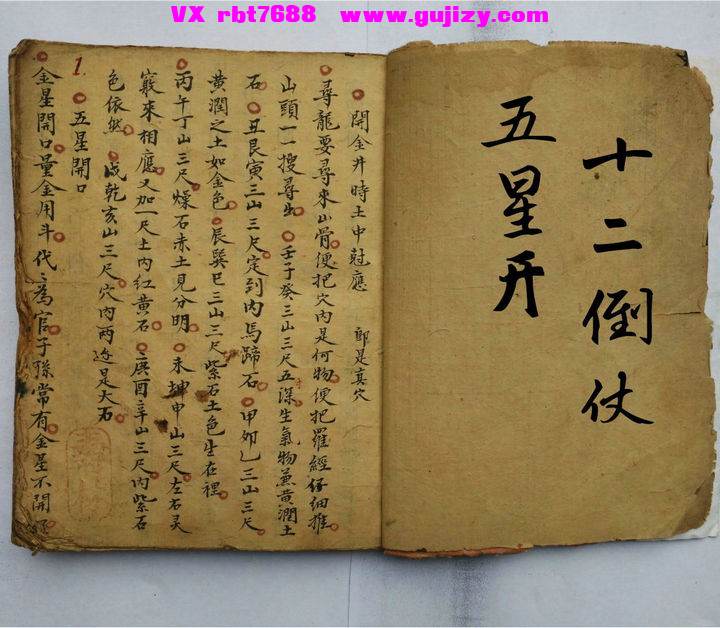 VX rbt7688 www.gujizy.com
十二倒仗
五星开
開金井時土中尅應 郎是真穴
尋龍要尋來山骨便把穴內是何物便把羅經仔細推
山頭一一搜尋出 壬子癸三山三尺五深生氣物兼黃潤土
石 丑艮寅三山三尺定到內馬蹄石 甲卯乙三山三尺
黃潤之土如金色 辰巽巳三山三尺紫石土色生在裡
丙午丁山三尺燥石赤土見分明 未坤申山三尺左右灵
窽來相應又加一尺土內紅黃石 庚酉辛山三尺內紫石
色依然 戍乾亥山三尺穴內兩边是大石
1.
五星開口
金星開口量金用斗代〻為官子孫常有金星不開